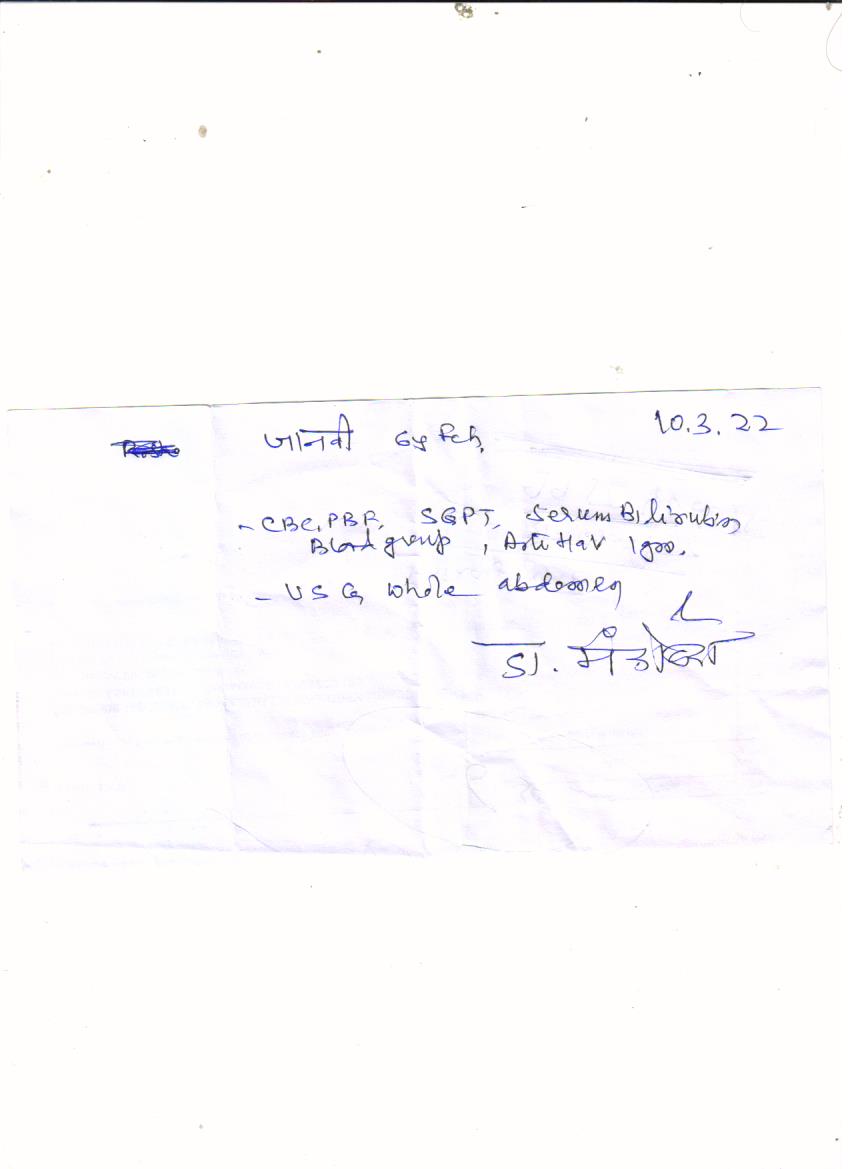 जानवी 6y Fch. 10.3.22
- CBC, PBF, SGPT, Serum Bilirubin
Blood group, Anti HAV Igm.
- USG whole abdomen
डा.